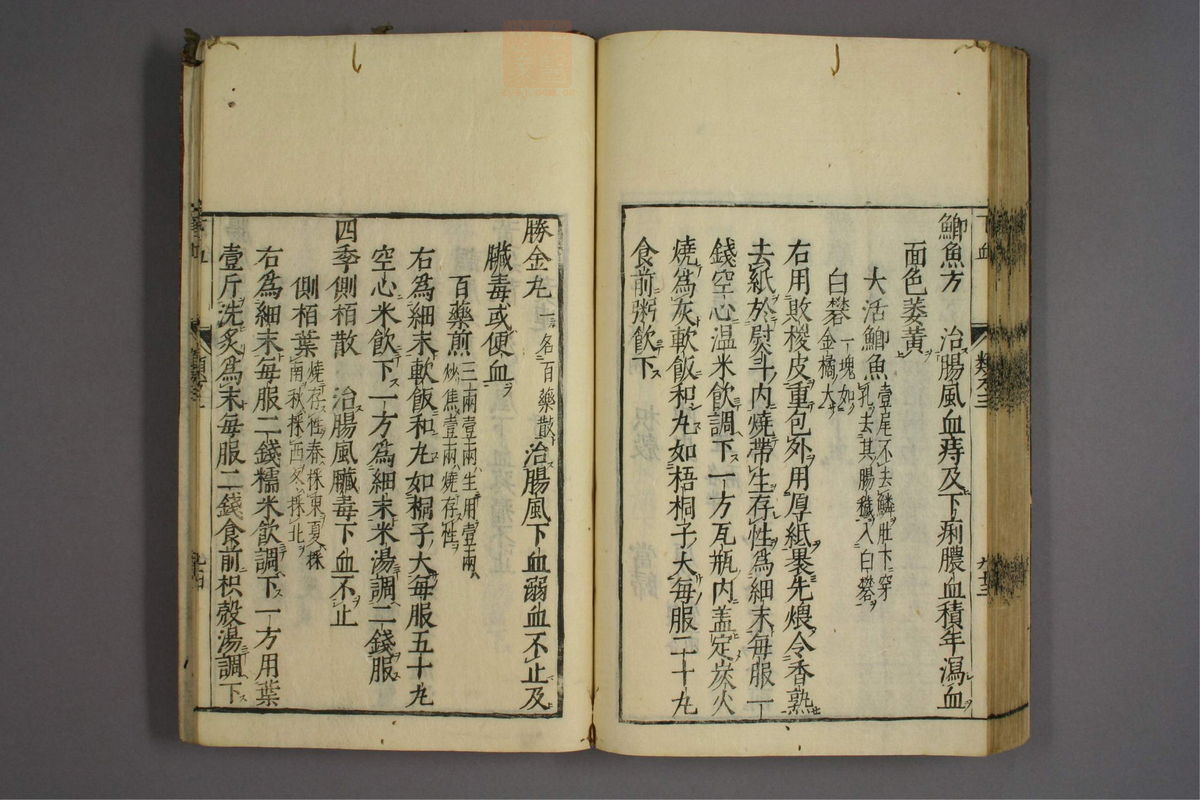 鯽魚方　治腸風血痔及下痢膿血積年瀉血
面色萎黃
大活鯽魚 壹尾不去鱗肚下穿
乳去其腸穢入白礬
白礬 一塊如
金橘大
右用敗椶皮重包外用厚紙裹先煨令香熟
去紙於熨斗内燒帶生存性為細末每服一
錢空心温米飲調下一方瓦瓶内蓋定炭火
燒為灰軟飯和丸如梧桐子大每服二十丸
食前粥飲下
勝金丸 一名百藥散 治腸風下血溺血不止及
臟毒或便血
百藥煎 三兩壹兩生用壹兩
炒焦壹兩燒存性
右為細末軟飯和丸如桐子大每服五十丸
空心米飲下一方為細末米湯調二錢服
四季側栢散　治腸風臟毒下血不止
側栢葉 燒存性春採東夏採
南秋採西冬採北
右為細末每服二錢糯米飲調下一方用葉
壹斤洗炙為末每服二錢食前枳殼湯調下